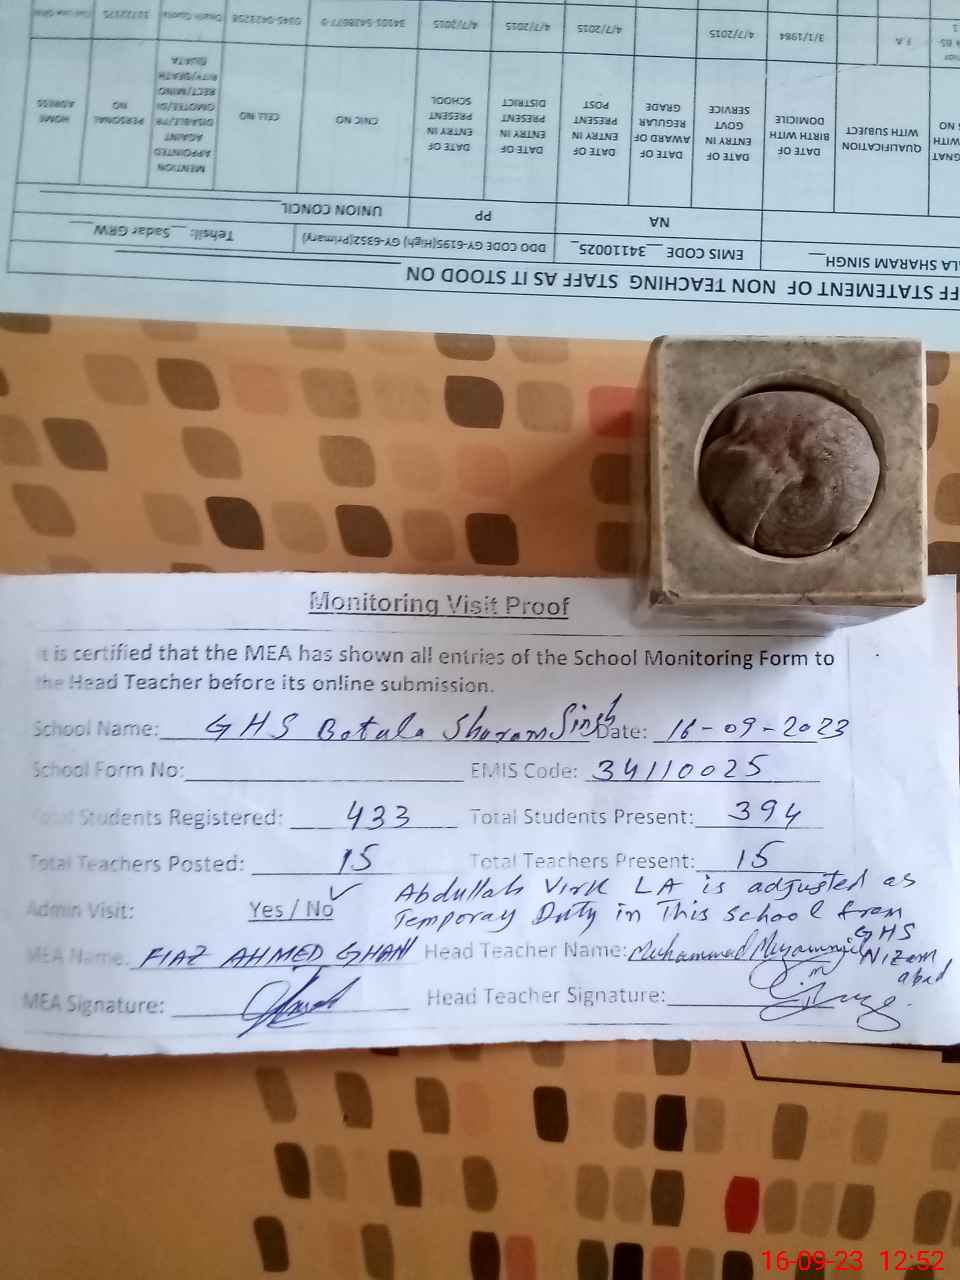 FF STATEMENT OF NON TEACHING STAFF AS IT STOOD ON
LA SHARAM SINGH
EMIS CODE 34110025
DDO CODE GY-6195(High) GY-6352(Primary)
Tehsil: Sadar GRW
NA
PP
UNION CONCIL
QUALIFICATION WITH SUBJECT
DATE OF BIRTH WITH DOMICILE
DATE OF ENTRY IN GOVT SERVICE
DATE OF AWARD OF REGULAR GRADE
DATE OF ENTRY IN PRESENT POST
DATE OF ENTRY IN PRESENT DISTRICT
DATE OF ENTRY IN PRESENT SCHOOL
CNIC NO
CELL NO
MENTION APPOINTED AGAINST
PERSONAL NO
HOME ADRESS
F.A
3/1/1984
4/7/2015
4/7/2015
4/7/2015
4/7/2015
Monitoring Visit Proof
It is certified that the MEA has shown all entries of the School Monitoring Form to
the Head Teacher before its online submission.
School Name: GHS Botala Sharam Singh Date: 16-09-2023
School Form No: EMIS Code: 34110025
Total Students Registered: 433 Total Students Present: 394
Total Teachers Posted: 15 Total Teachers Present: 15
Admin Visit: Yes / No ✓ Abdullah Virk LA is adjusted as
Temporay Duty in This school from
GHS Nizam abad
MEA Name: FIAZ AHMED GHAN Head Teacher Name: Muhammad
MEA Signature: Head Teacher Signature:
16-09-23 12:52